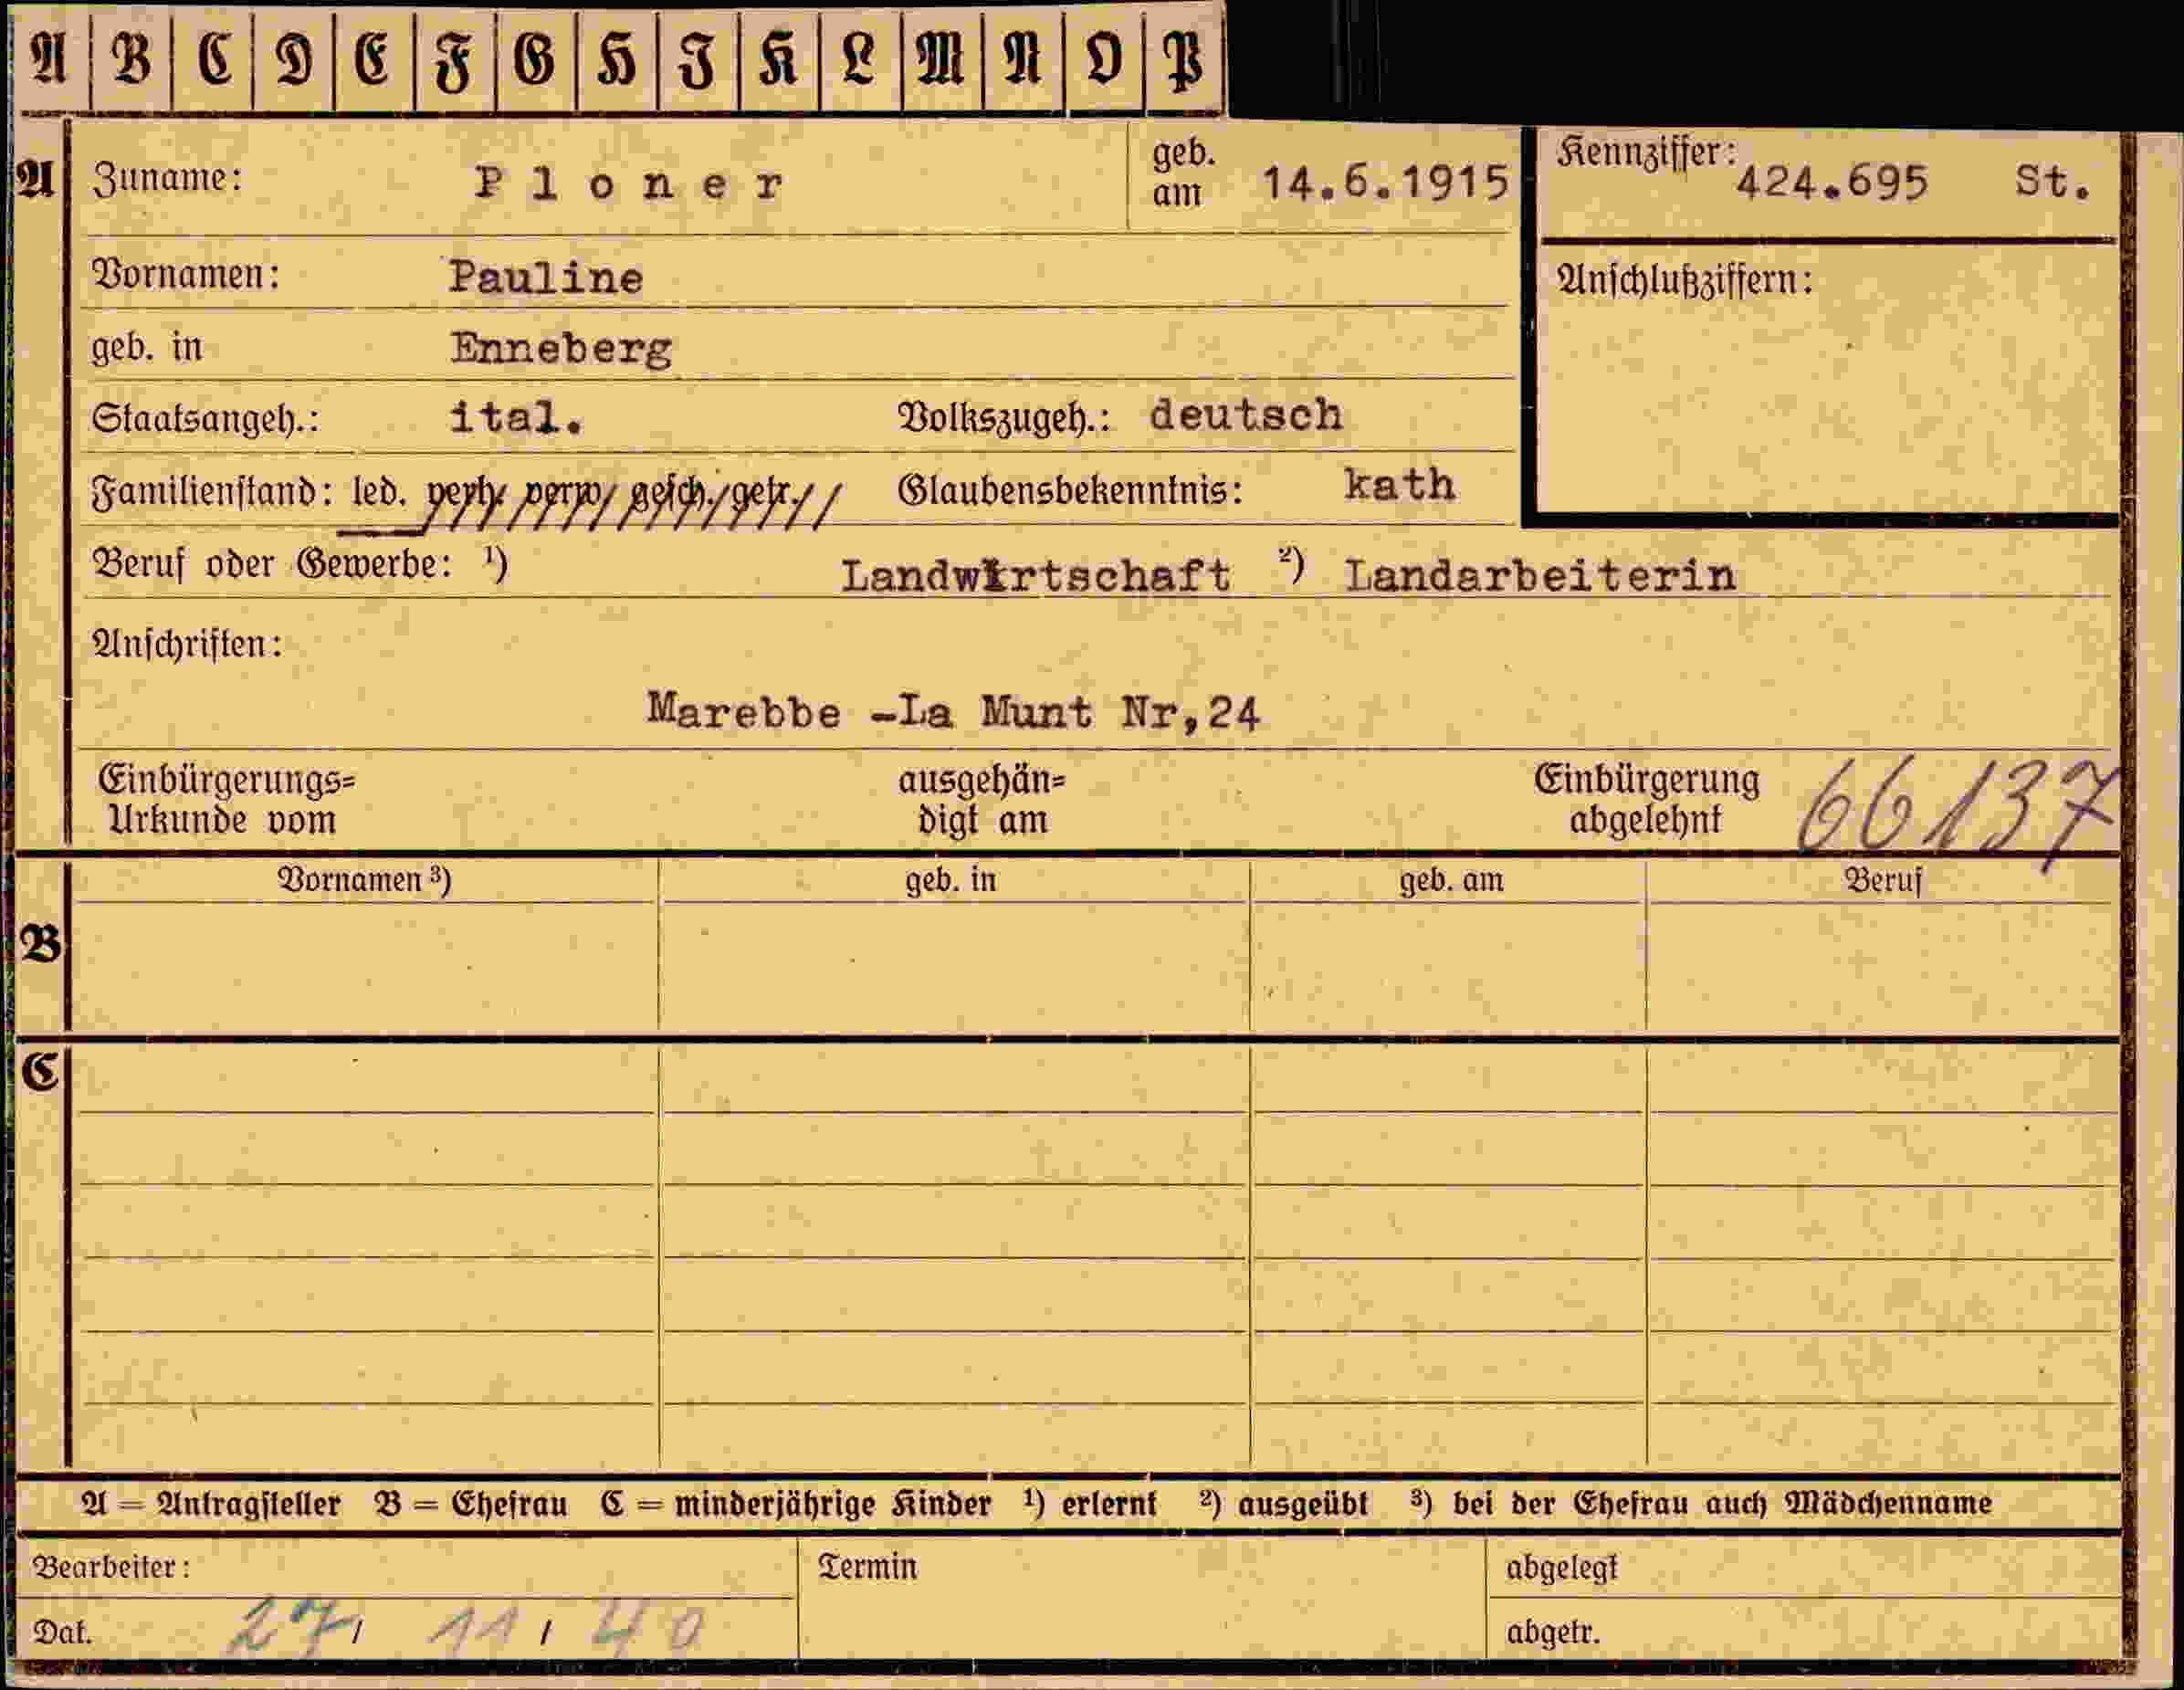 A B C D E F G H I K L M N O P
A Zuname: Ploner geb. am 14.6.1915 Kennziffer: 424.695 St.
Vornamen: Pauline Anschlußziffern:
geb. in Enneberg
Staatsangeh.: ital. Volkszugeh.: deutsch
Familienstand: led. verh. verw. gesch. getr. Glaubensbekenntnis: kath
Beruf oder Gewerbe: ¹) Landwirtschaft ²) Landarbeiterin
Anschriften:
Marebbe -La Munt Nr,24
Einbürgerungs= ausgehän= Einbürgerung 66137
Urkunde vom digt am abgelehnt
Vornamen ³) geb. in geb. am Beruf
B
C
A = Antragsteller B = Ehefrau C = minderjährige Kinder ¹) erlernt ²) ausgeübt ³) bei der Ehefrau auch Mädchenname
Bearbeiter: Termin abgelegt
Dat. 27/ 11/ 40 abgetr.